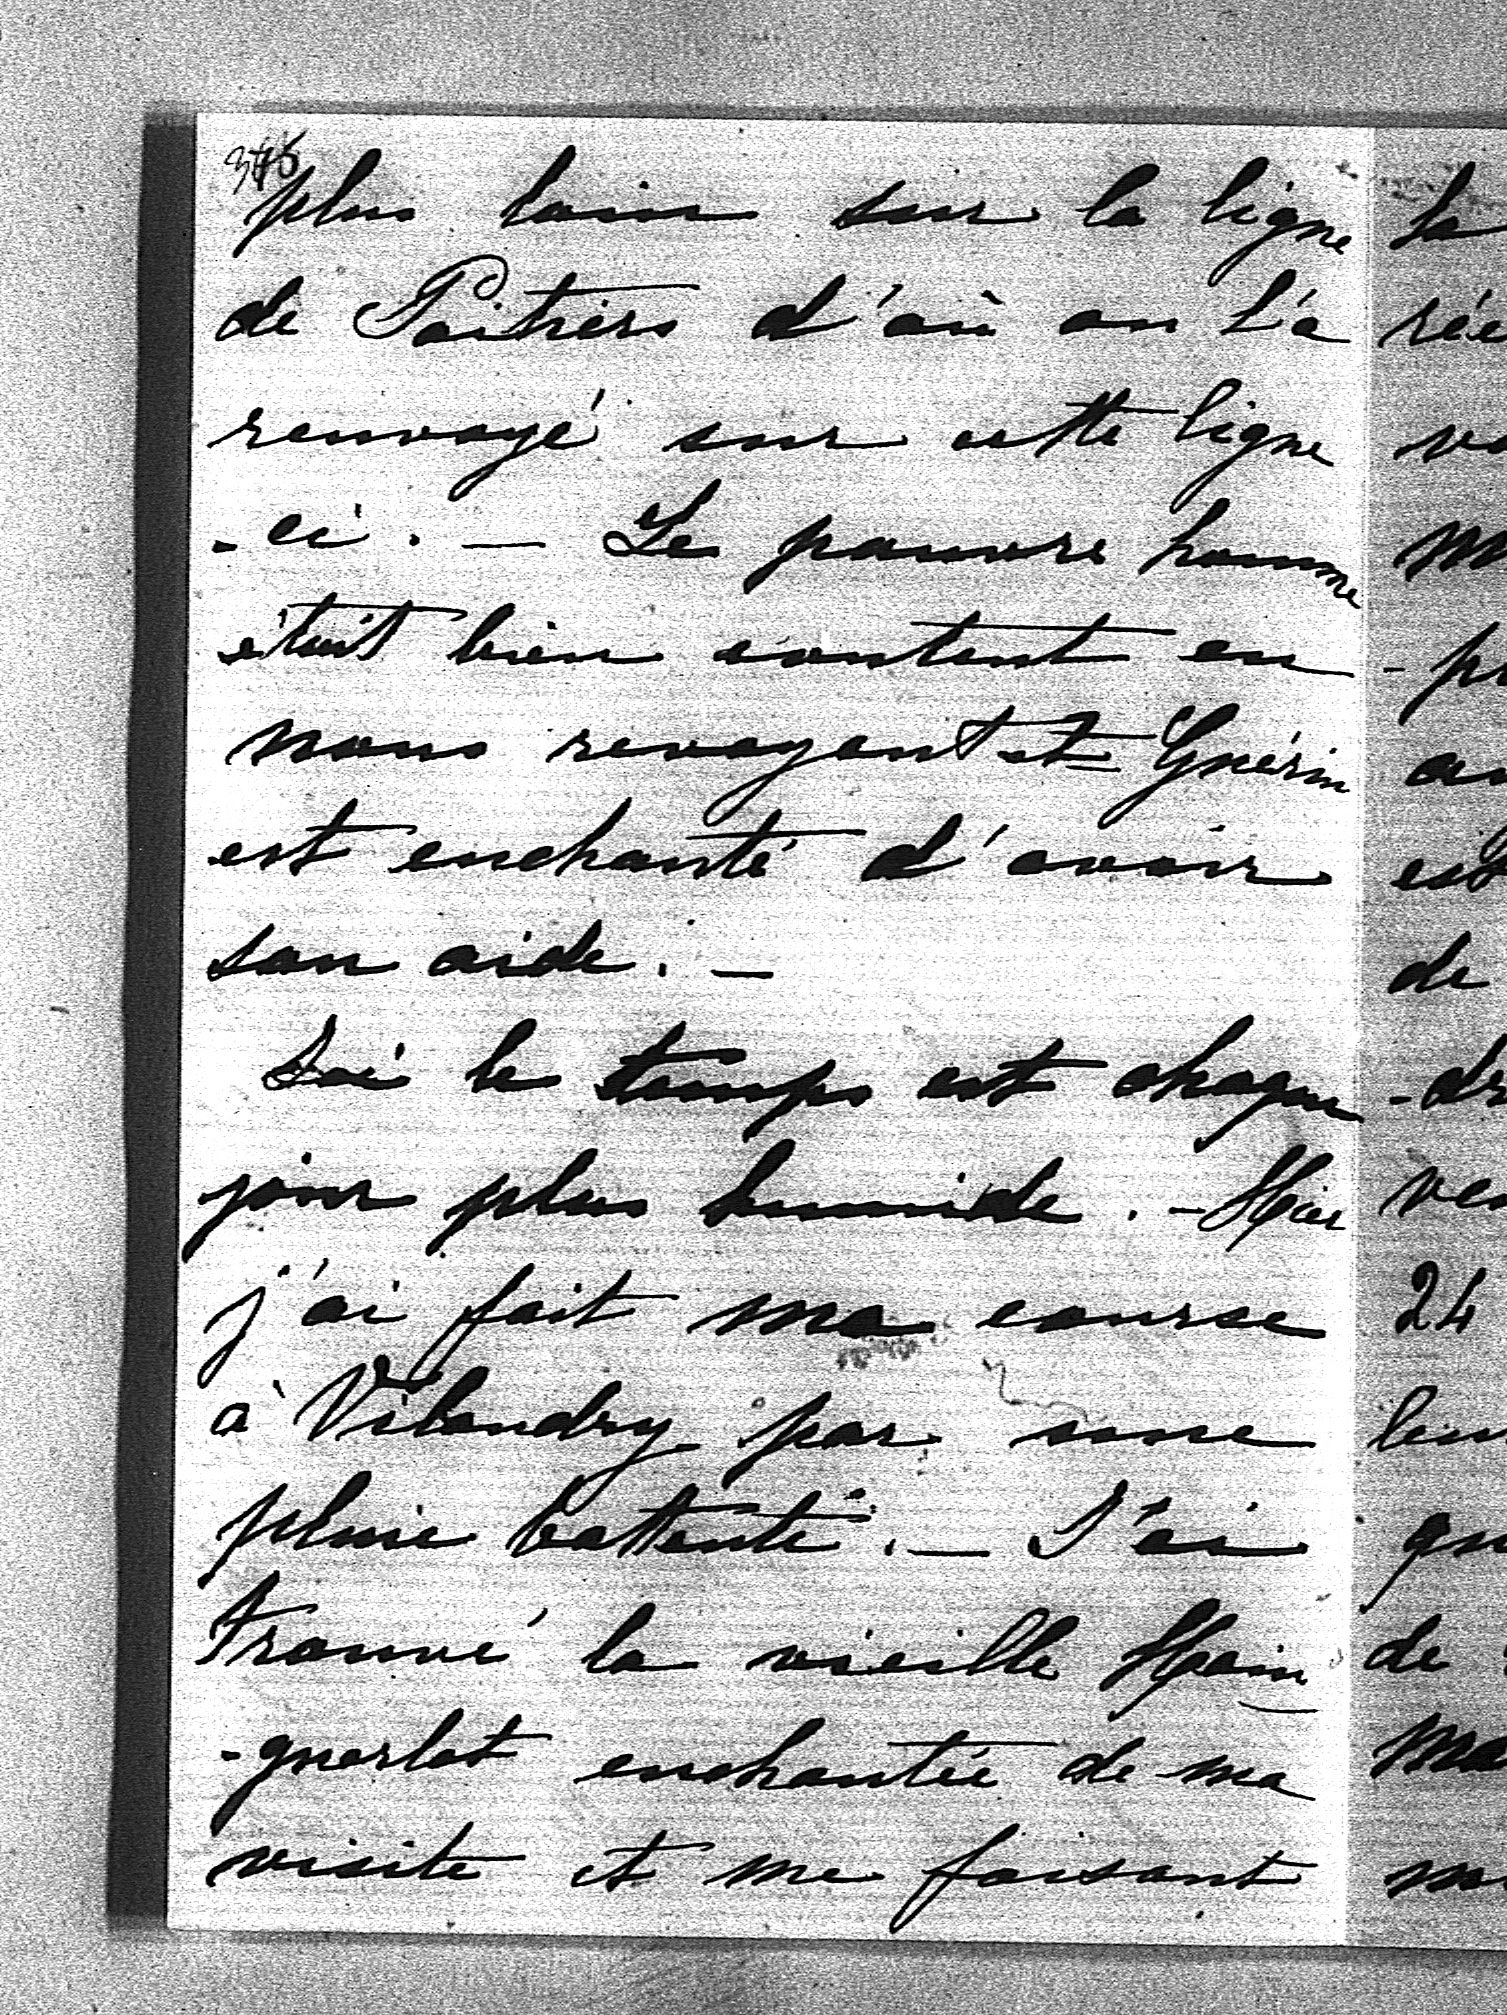 plus loin sur la ligne
de Poitiers d'où on l'a
renvoyé sur cette ligne
-ci. — Le pauvre homme
était bien content en
nous revoyant et Guérin
est enchanté d'avoir
son aide. —
Ici le temps est chaque
jour plus humide. - Hier
j'ai fait ma course
à Vilandry par une
pluie battante. — J'ai
trouvé la vieille Hain
-guerlot enchantée de ma
visite et me faisant
la
rée
vo
m
- pr
au
est
de
-dr
ven
24
lui
qu
de
ma
m